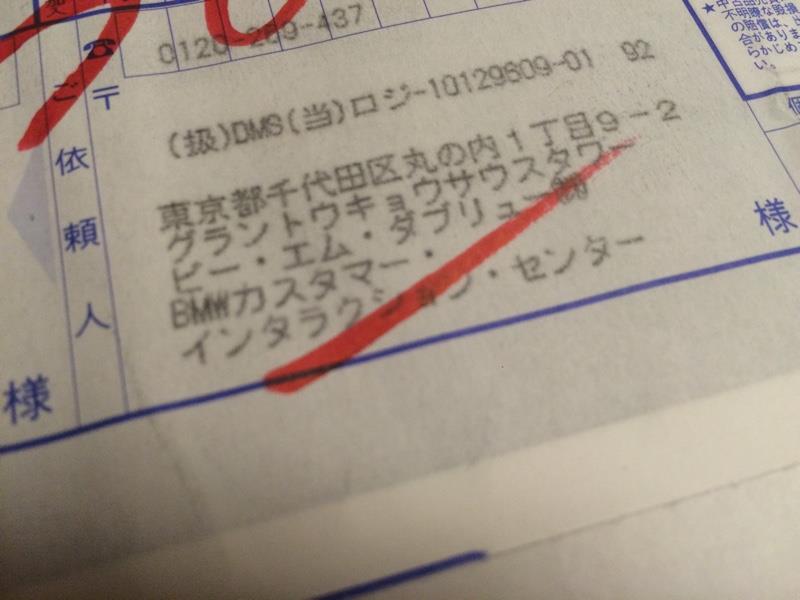 0120-269-437
(扱)DMS(当)ロジ-10129609-01 92
東京都千代田区丸の内1丁目9-2
グラントウキョウサウスタワー
ビー・エム・ダブリュー㈱
BMWカスタマー・
インタラクション・センター
〒
ご依頼人
様
様